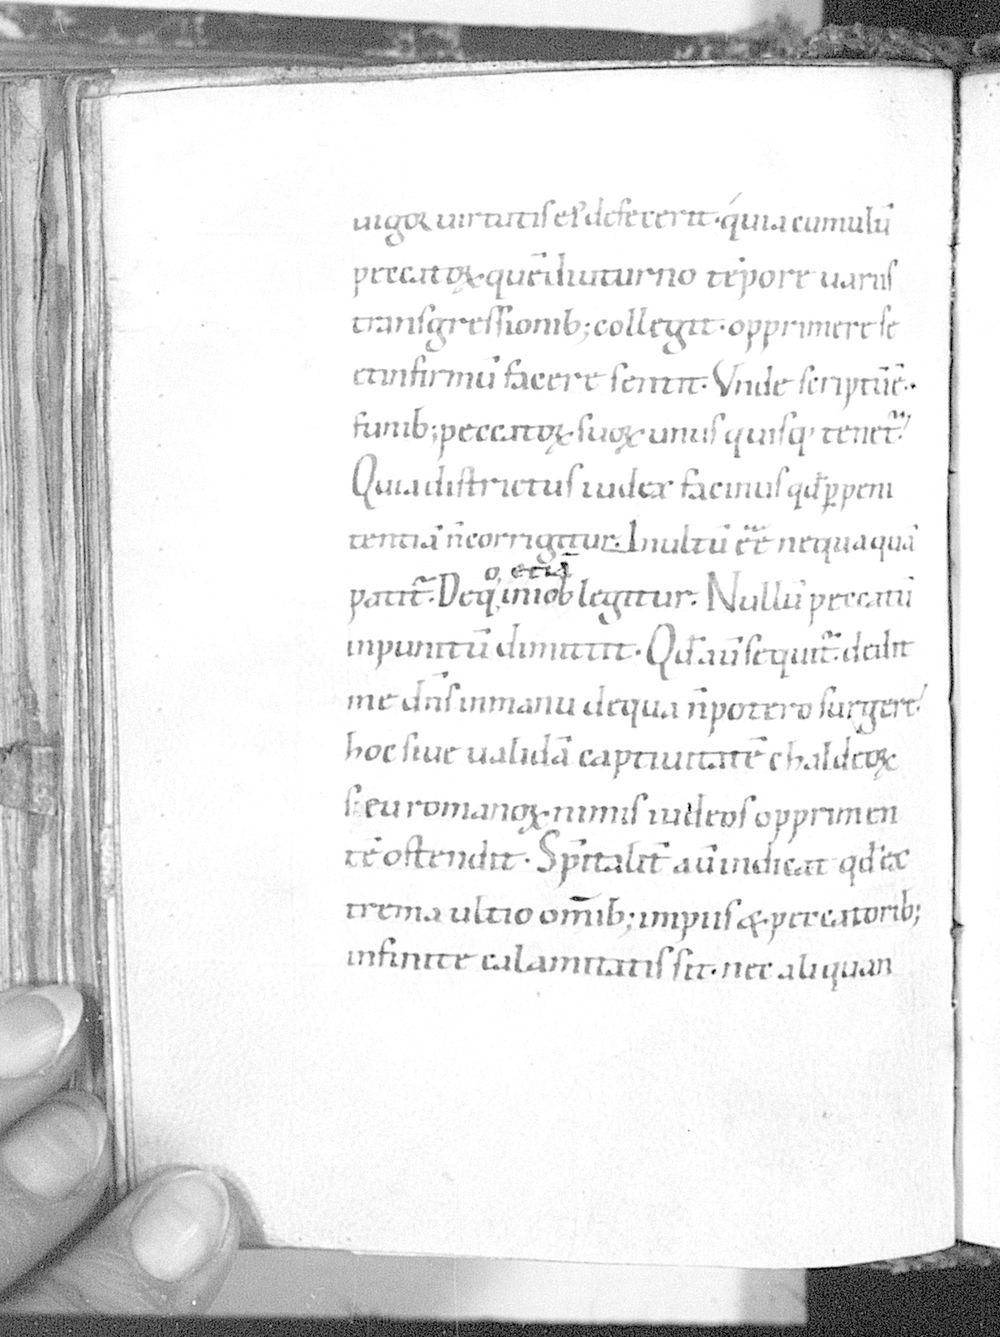 uigor uirtutis ei defecerit· quia cumulū
peccatoꝝ· quē diuturno tēpore uariis
transgressionib; collegit· opprimere se
et infirmū facere sentit· Vnde scriptū ē·
funib; peccatoꝝ suoꝝ unus quisq' tenet̄·
Quia districtus iudex facinus qđ p̱ peni
tentiā n̄ corrigitur· Inultū ēē nequaquā
patit̄· De q' o etiā in iob legitur· Nullū peccatū
inpunitū dimittit· Qđ aū sequit̄· dedit
me dn̄s in manu de qua n̄ potero surgere·
hoc siue ualidā captiuitatē chaldeoꝝ
seu romanoꝝ nimis iudeos opprimen
tē ostendit· Sp̄italit̄ aū indicat qđ ex
trema ultio om̄ib; impiis & peccatorib;
infinite calamitatis sit· nec aliquan